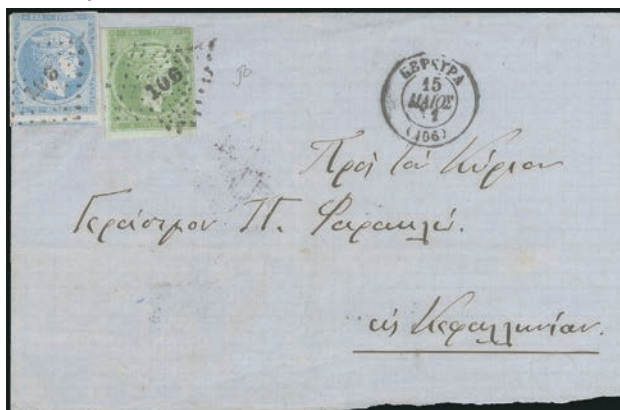 106
106
ΚΕΡΚΥΡΑ
15
ΜΑΙΟΣ
1
(106)
Πρὸς τὸν Κύριον
Γεράσιμον Π.
εἰς Κεφαλληνίαν.